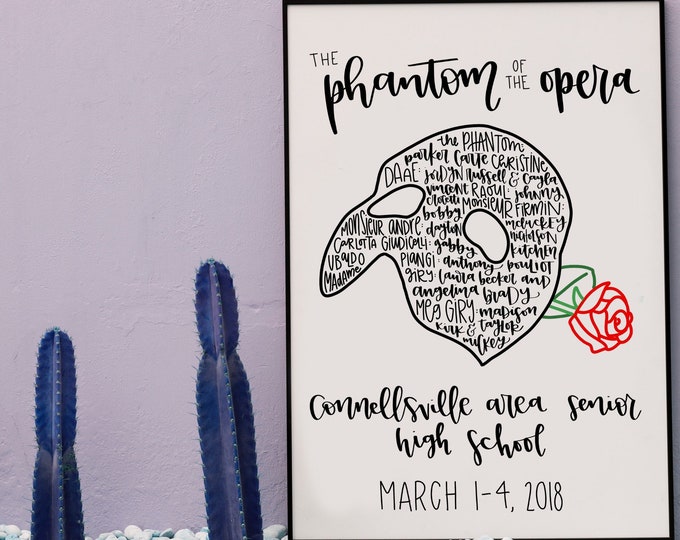 THE phantom OF THE opera
the PHANTOM:
parker carte CHRISTINE
DAAE: jordyn russell & cayla
vincent RAOUL: johnny
MONSIEUR FIRMIN:
bobby
MONSIEUR ANDRE: dayton nicholson
CARLOTTA GIUDICELLI: gabby kitchen
UBALDO PIANGI: anthony pouliot
MADAME GIRY: laura becker and
angelina brady
MEG GIRY: madison
kirk & taylor
mickey
Connellsville area senior
high school
MARCH 1-4, 2018